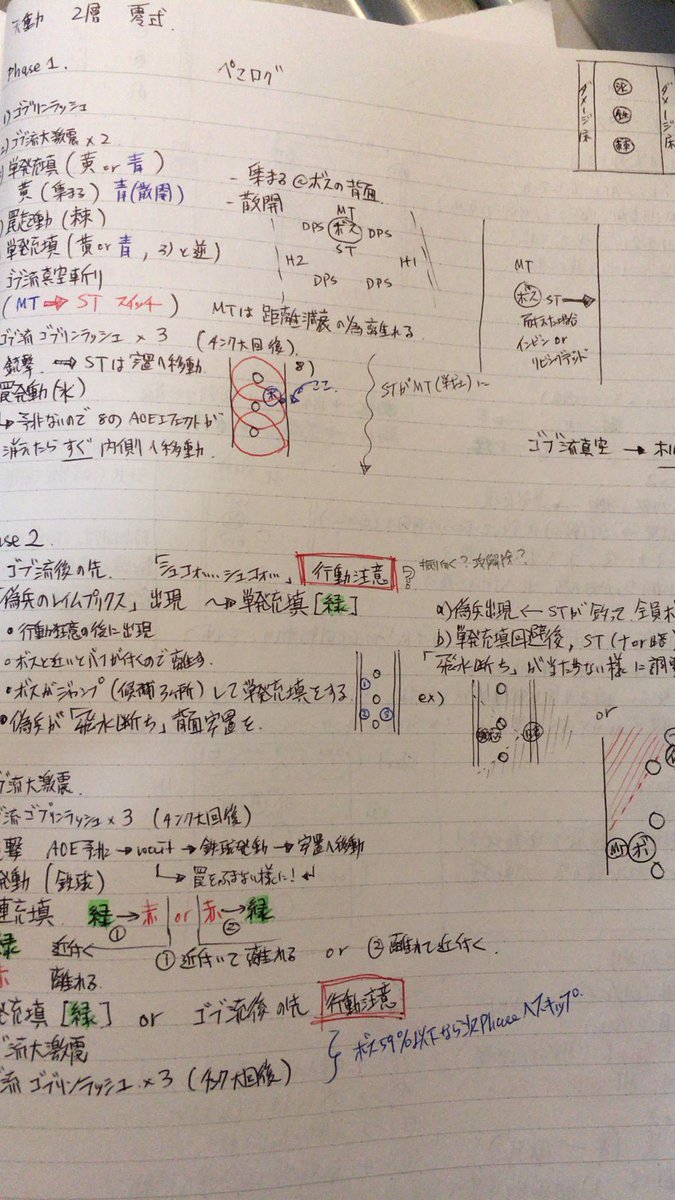 天動 2層 零式
Phase 1.
ペロログ
1) ゴブリンラッシュ
2) ゴブ流大激震×2
単発充填(黄 or 青)
黄(集まる) 青(散開)
罠起動(棘)
単発充填(黄 or 青, 3)と逆)
ゴブ流真空斬り
(MT → ST スイッチ)
ゴブ流 ゴブリンラッシュ × 3 (タンク大回復).
銃撃. → STは安置へ移動.
罠発動(水)
↳ 予兆ないので 8の AOEエフェクトが
消えたら すぐ 内側へ移動.
- 集まる@ボスの背面
- 散開
MT
DPS ボス DPS
ST
H2 H1
DPS DPS
MTは 距離減衰の為 離れる
8)
水
ココ
STがMT(単独)に
ダメージ床
泥
鉄
棘
ダメージ床
MT
ボス ST →
耐えた場合
インビン or
リビングデッド
ゴブ流真空 →
ase 2.
ゴブ流後の先. 「シュコォ… シュコォ…」 行動注意
「偽兵のレイムプリクス」出現 → 単発充填[緑]
・行動注意の後に出現
・ボスと近いとバフが付くので離す.
・ボスがジャンプ(候補3ヵ所)して単発充填をする
・偽兵が「飛水断ち」背面安置を.
1
2 3
a) 偽兵出現 ← STが釣って 全員ボ
b) 単発充填回避後, ST
「飛水断ち」が当たらない様に調整
ex)
or
MT ボ
ブ流大激震.
流 ゴブリンラッシュ×3 (タンク大回復)
撃 AOE予兆 → wait → 鉄球発動 → 安置へ移動
発動(鉄球) 罠をふまない様に!
連充填. 緑→赤 or 赤→緑
① ②
緑 近付く ①近付いて離れる or ②離れて近付く.
赤 離れる
発充填[緑] or ゴブ流後の先 行動注意
ブ流大激震
流 ゴブリンラッシュ×3 (タンク大回復)
ボス59%以下なら次Phaseへスキップ.